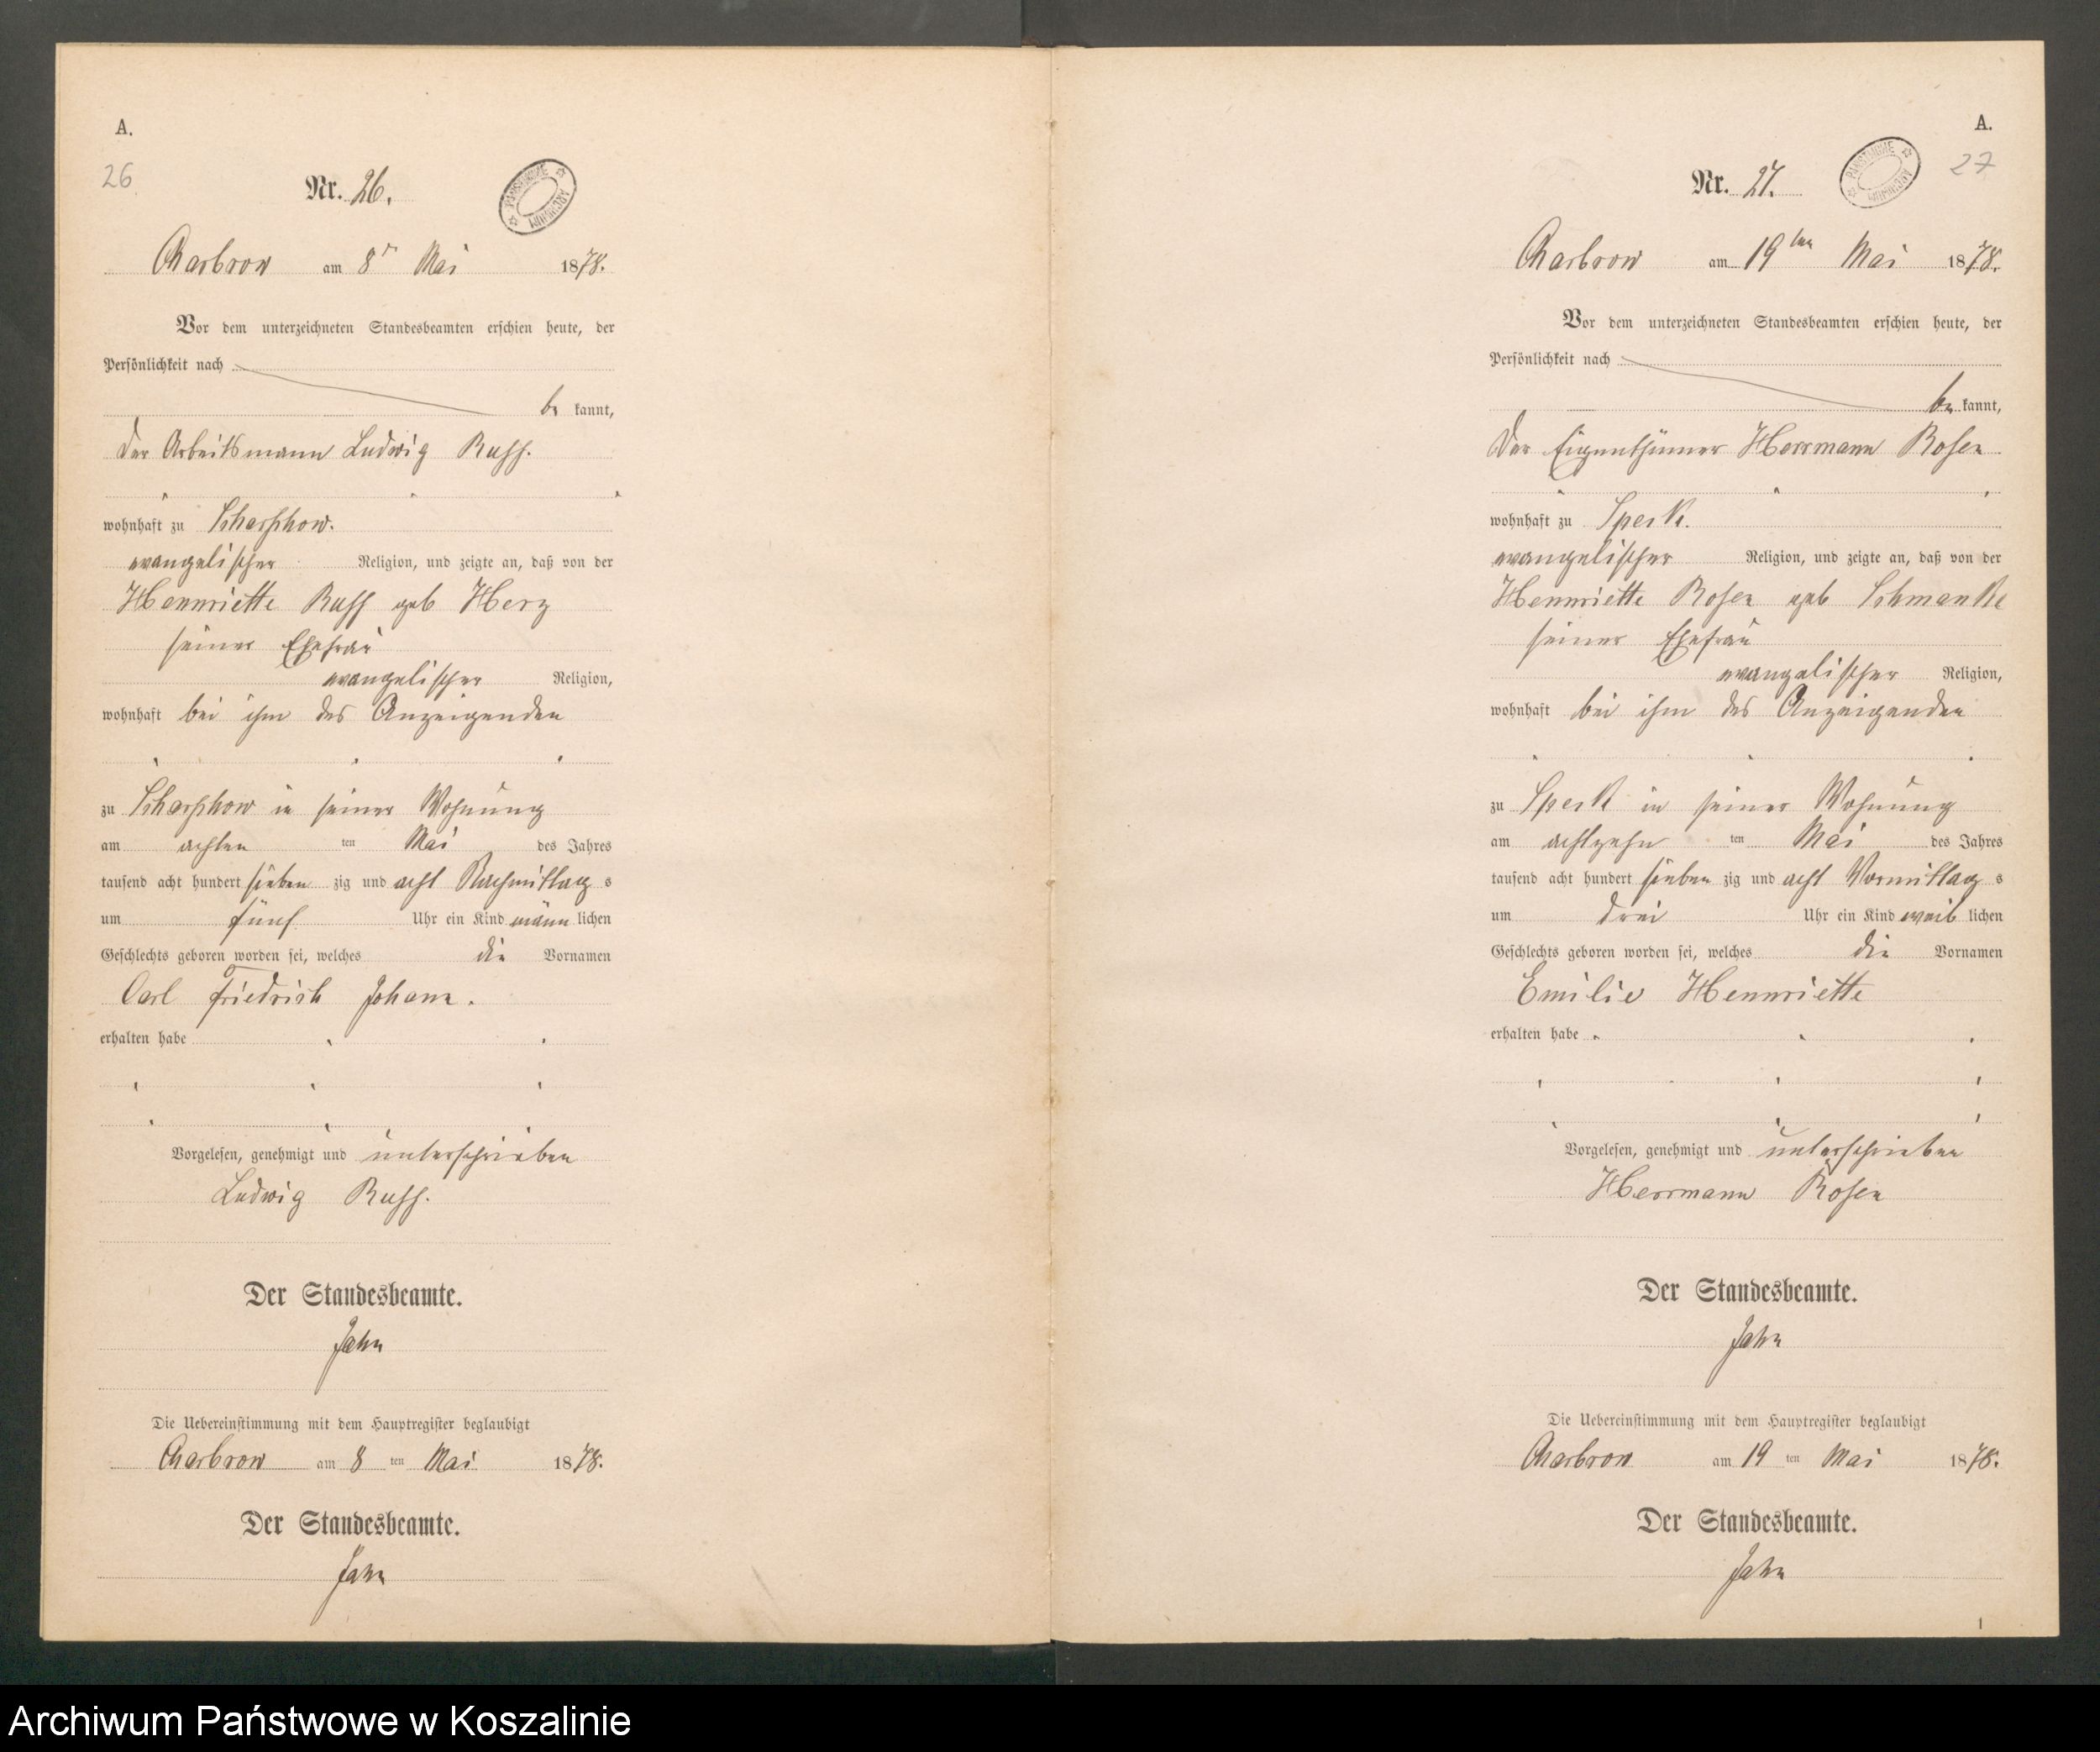 A.
26
Nr. 26.
PAŃSTWOWE ARCHIWUM
Charbrow am 8t Mai 1878.
Vor dem unterzeichneten Standesbeamten erschien heute, der
Persönlichkeit nach
be kannt,
der Arbeitsmann Ludwig Russ.
wohnhaft zu Scharschow.
evangelischer Religion, und zeigte an, daß von der
Hennriette Russ geb Herz
seiner Ehefrau
evangelischer Religion,
wohnhaft bei ihm des Anzeigenden
zu Scharschow in seiner Wohnung
am achten ten Mai des Jahres
tausend acht hundert sieben zig und acht Nachmittag s
um fünf Uhr ein Kind männ lichen
Geschlechts geboren worden sei, welches die Vornamen
Carl Friedrich Johann.
erhalten habe
Vorgelesen, genehmigt und unterschrieben
Ludwig Russ.
Der Standesbeamte.
Jahn
Die Uebereinstimmung mit dem Hauptregister beglaubigt
Charbrow am 8 ten Mai 1878.
Der Standesbeamte.
Jahn
A.
27
Nr. 27.
PAŃSTWOWE ARCHIWUM
Charbrow am 19ten Mai 1878.
Vor dem unterzeichneten Standesbeamten erschien heute, der
Persönlichkeit nach
be kannt,
der Eigenthümer Herrmann Rosen
wohnhaft zu Speck.
evangelischer Religion, und zeigte an, daß von der
Hennriette Rosen geb Schmanke
seiner Ehefrau
evangelischer Religion,
wohnhaft bei ihm des Anzeigenden
zu Speck in seiner Wohnung
am achtzehn ten Mai des Jahres
tausend acht hundert sieben zig und acht Vormittag s
um drei Uhr ein Kind weib lichen
Geschlechts geboren worden sei, welches die Vornamen
Emilie Hennriette
erhalten habe
Vorgelesen, genehmigt und unterschrieben
Herrmann Rosen
Der Standesbeamte.
Jahn
Die Uebereinstimmung mit dem Hauptregister beglaubigt
Charbrow am 19 ten Mai 1878.
Der Standesbeamte.
Jahn
1
Archiwum Państwowe w Koszalinie